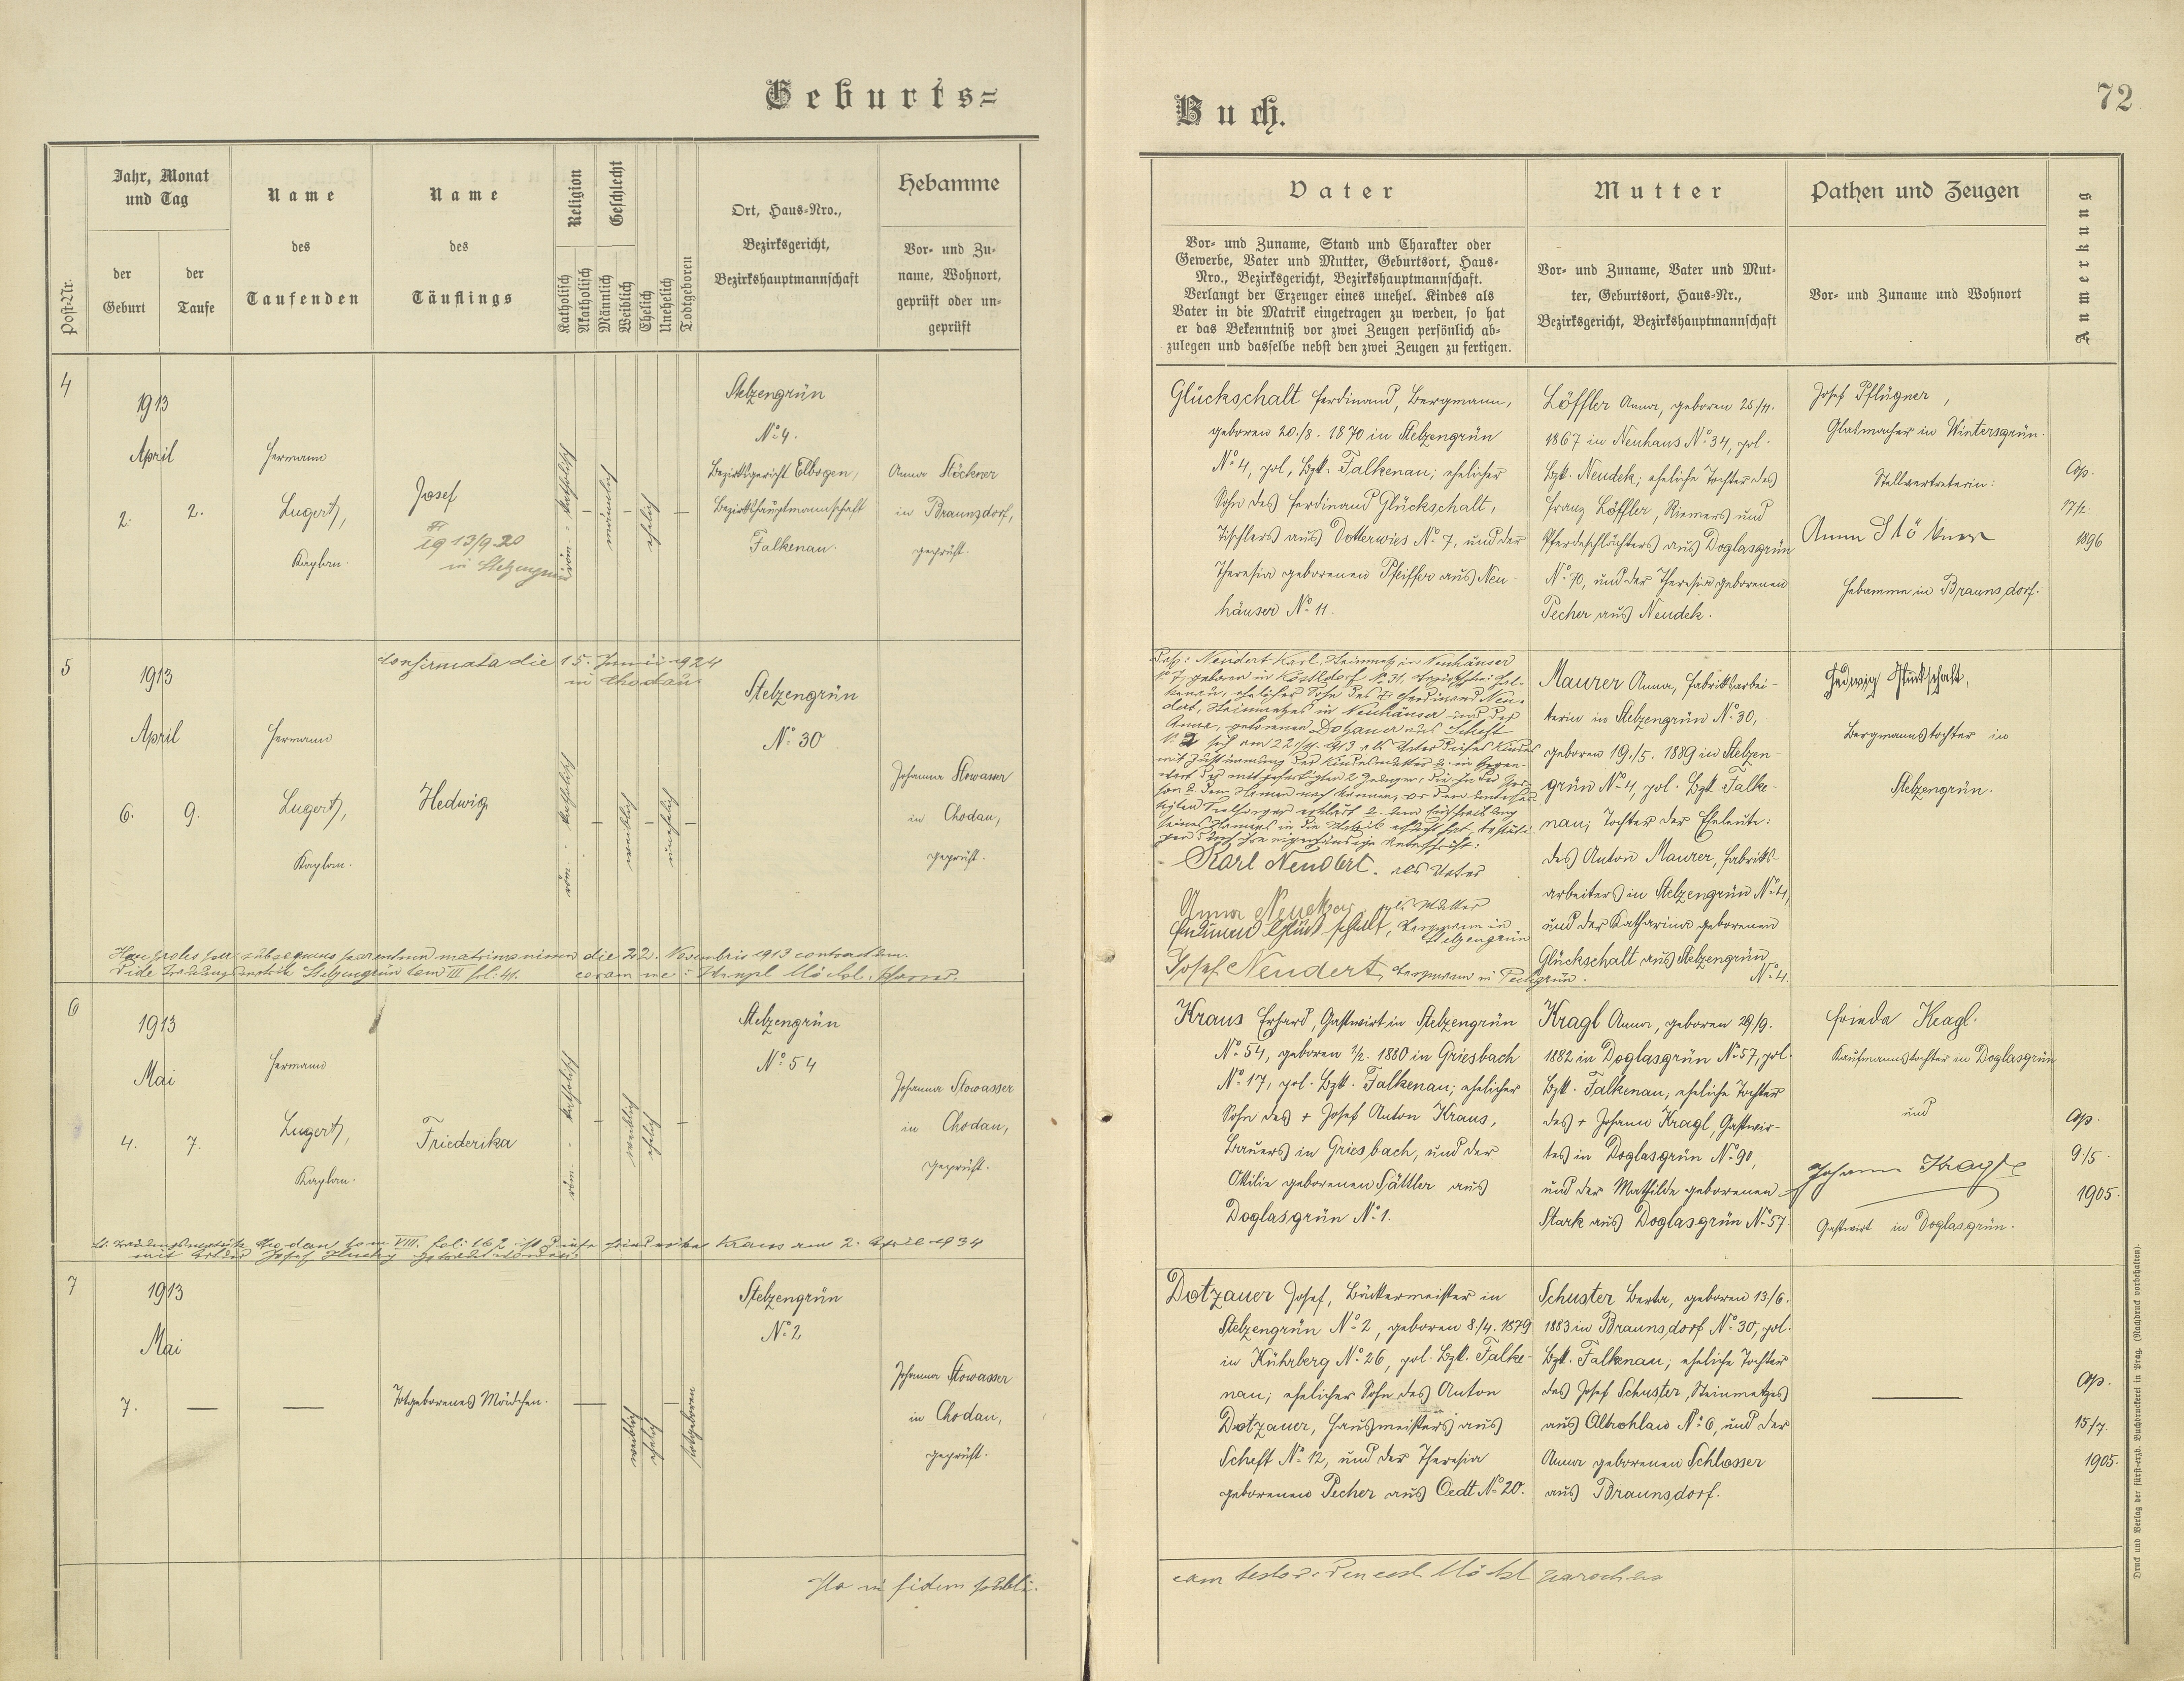 Geburts=
Buch.
72
Post-Nr.
Jahr, Monat
und Tag
der
Geburt
der
Taufe
Name
des
Taufenden
Name
des
Täuflings
Religion
Katholisch
Akatholisch
Geschlecht
Männlich
Weiblich
Ehelich
Unehelich
Todtgeboren
Ort, Haus=Nro.,
Bezirksgericht,
Bezirkshauptmannschaft
Hebamme
Vor= und Zu=
name, Wohnort,
geprüft oder un=
geprüft
Vater
Vor= und Zuname, Stand und Charakter oder
Gewerbe, Vater und Mutter, Geburtsort, Haus=
Nro., Bezirksgericht, Bezirkshauptmannschaft.
Verlangt der Erzeuger eines unehel. Kindes als
Vater in die Matrik eingetragen zu werden, so hat
er das Bekenntniß vor zwei Zeugen persönlich ab=
zulegen und dasselbe nebst den zwei Zeugen zu fertigen.
Mutter
Vor= und Zuname, Vater und Mut=
ter, Geburtsort, Haus=Nr.,
Bezirksgericht, Bezirkshauptmannschaft
Pathen und Zeugen
Vor= und Zuname und Wohnort
Anmerkung
4
1913
April
2.
2.
Hermann
Lugert,
Kaplan.
Josef
13/9 20
in Stelzengrün
röm. - katholisch
männlich
ehelich
Stelzengrün
No 4.
Bezirksgericht Elbogen,
Bezirkshauptmannschaft
Falkenau.
Anna Stöckner
in Braunsdorf,
geprüft.
Glückschalt Ferdinand, Bergmann,
geboren 20./8. 1870 in Stelzengrün
No 4, pol. Bzk. Falkenau; ehelicher
Sohn des Ferdinand Glückschalt,
Tischlers aus Dotterwies No 7, und der
Theresia geborenen Pfeiffer aus Neu-
häuser No 11.
Löffler Anna, geboren 25/11.
1867 in Neuhaus No 34, pol.
Bzk. Neudek; eheliche Tochter des
Franz Löffler, Riemers und
Pferdeschlächters aus Doglasgrün
No 70, und der Theresia geborenen
Pecher aus Neudek.
Josef Pflügner,
Glasmacher in Wintersgrün.
Stellvertreterin:
Anna Stöckner
Hebamme in Braunsdorf.
Cop.
17/2.
1896
5
Confirmata die 15. Junii 1924
in Chodau
1913
April
6.
9.
Hermann
Lugert,
Kaplan.
Hedwig
röm. - katholisch
weiblich
unehelich
Stelzengrün
No 30
Johanna Stowasser
in Chodau,
geprüft.
Neudert Karl, Steinmetz in Neuhäuser
No 7, geboren in
Anna, geborenen Dotzauer aus Scheft
Karl Neudert. als Vater
als Mutter
Ferdinand Glückschalt, Bergmann in
Stelzengrün
Josef Neudert, Bergmann in
Maurer Anna, Fabriksarbei-
terin in Stelzengrün No 30,
geboren 19./5. 1889 in Stelzen-
grün No 4, pol. Bzk. Falke-
nau; Tochter der Eheleute:
des Anton Maurer, Fabriks-
arbeiters in Stelzengrün No 4,
und der Katharina geborenen
Glückschalt aus Stelzengrün
No 4.
Hedwig Glückschalt,
Bergmannstochter in
Stelzengrün.
Haec proles per subsequens parentum matrimonium die 22. Novembris 1913 contractum
Vide Trauungsmatrik Stelzengrün tom III fol: 41. coram me: Wenzel Möckl, Pfarrer.
6
1913
Mai
4.
7.
Hermann
Lugert,
Kaplan.
Friederika
röm. - katholisch
weiblich
ehelich
Stelzengrün
No 54
Johanna Stowasser
in Chodau,
geprüft.
Kraus Erhard, Gastwirt in Stelzengrün
No 54, geboren 1/2. 1880 in Griesbach
No 17, pol. Bzk. Falkenau; ehelicher
Sohn des + Josef Anton Kraus,
Bauers in Griesbach, und der
Ottilie geborenen Sättler aus
Doglasgrün No 1.
Kragl Anna, geboren 29/9.
1882 in Doglasgrün No 57, pol.
Bzk. Falkenau, eheliche Tochter
des + Johann Kragl, Gastwir-
tes in Doglasgrün No 90,
und der Mathilde geborenen
Stark aus Doglasgrün No 57.
Frieda Kragl.
Kaufmannstochter in Doglasgrün
und
Johann Kragl
Gastwirt in Doglasgrün.
Cop.
9/5.
1905.
Trauungsmatrik Chodau tom VIII. fol: 162 ist Kraus am 2. April 1934
mit Josef getraut worden.
7
1913
Mai
7.
—
—
Totgeborenes Mädchen.
weiblich
ehelich
totgeboren
Stelzengrün
No 2
Johanna Stowasser
in Chodau,
geprüft.
Dotzauer Josef, Bäckermeister in
Stelzengrün No 2, geboren 8./4. 1879
in Kührberg No 26, pol. Bzk. Falke-
nau; ehelicher Sohn des Anton
Dotzauer, Hausmeisters aus
Scheft No 12, und der Theresia
geborenen Pecher aus Oedt No 20.
Schuster Berta, geboren 13/6.
1883 in Braunsdorf No 30, pol.
Bzk. Falkenau; eheliche Tochter
des Josef Schuster, Steinmetzes
aus Altrohlau No 6, und der
Anna geborenen Schlosser
aus Braunsdorf.
—
Cop.
15/7.
1905.
Ita in fidem publi-
cam testor: Möckl parochus
Druck und Verlag der fürst-erzb. Buchdruckerei in Prag. (Nachdruck vorbehalten).